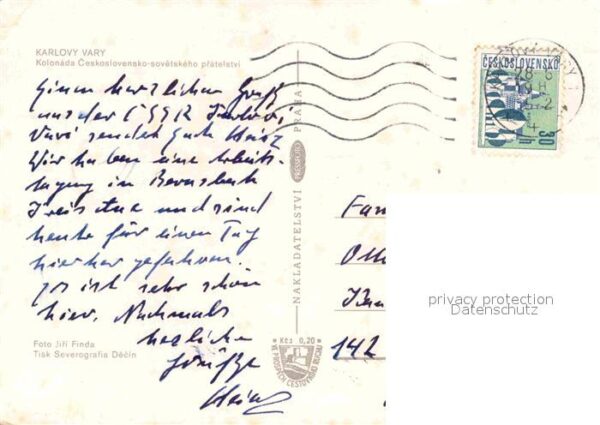 KARLOVY VARY
Kolonáda Československo-sovětského přátelství
Einen herzlichen Gruß
aus der ČSSR Karlovi
Vari sendet Euch Heinz
Wir haben eine Arbeits-
tagung in
und sind
heute für einen Tag
hierher gefahren.
Es ist sehr schön
hier. Nochmals
herzliche
Grüße
Heinz
Foto Jiří Finda
Tisk Severografia Děčín
NAKLADATELSTVÍ PRESSFOTO PRAHA
Kčs 0,20
VE PROSPĚCH CESTOVNÍHO RUCHU
ČESKOSLOVENSKO
30 h
Fam
142
privacy protection
Datenschutz